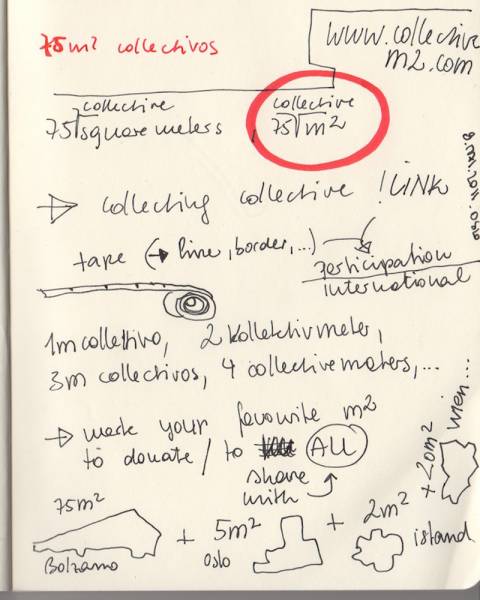 75m² collectivos
www.collective
m2.com
collective
75 square meters
collective
75 m²
→ collecting collective ! LINK
tape (→ line, border, ...)
participation
international
1m collettivo, 2 Kollektivmeter,
3m collectivos, 4 collectivemeters, ...
→ mark your favourite m²
to donate / to ALL
share
with
75m²
Bolzano
+ 5m²
Oslo
+ 2m²
island
+ 20m² wien...